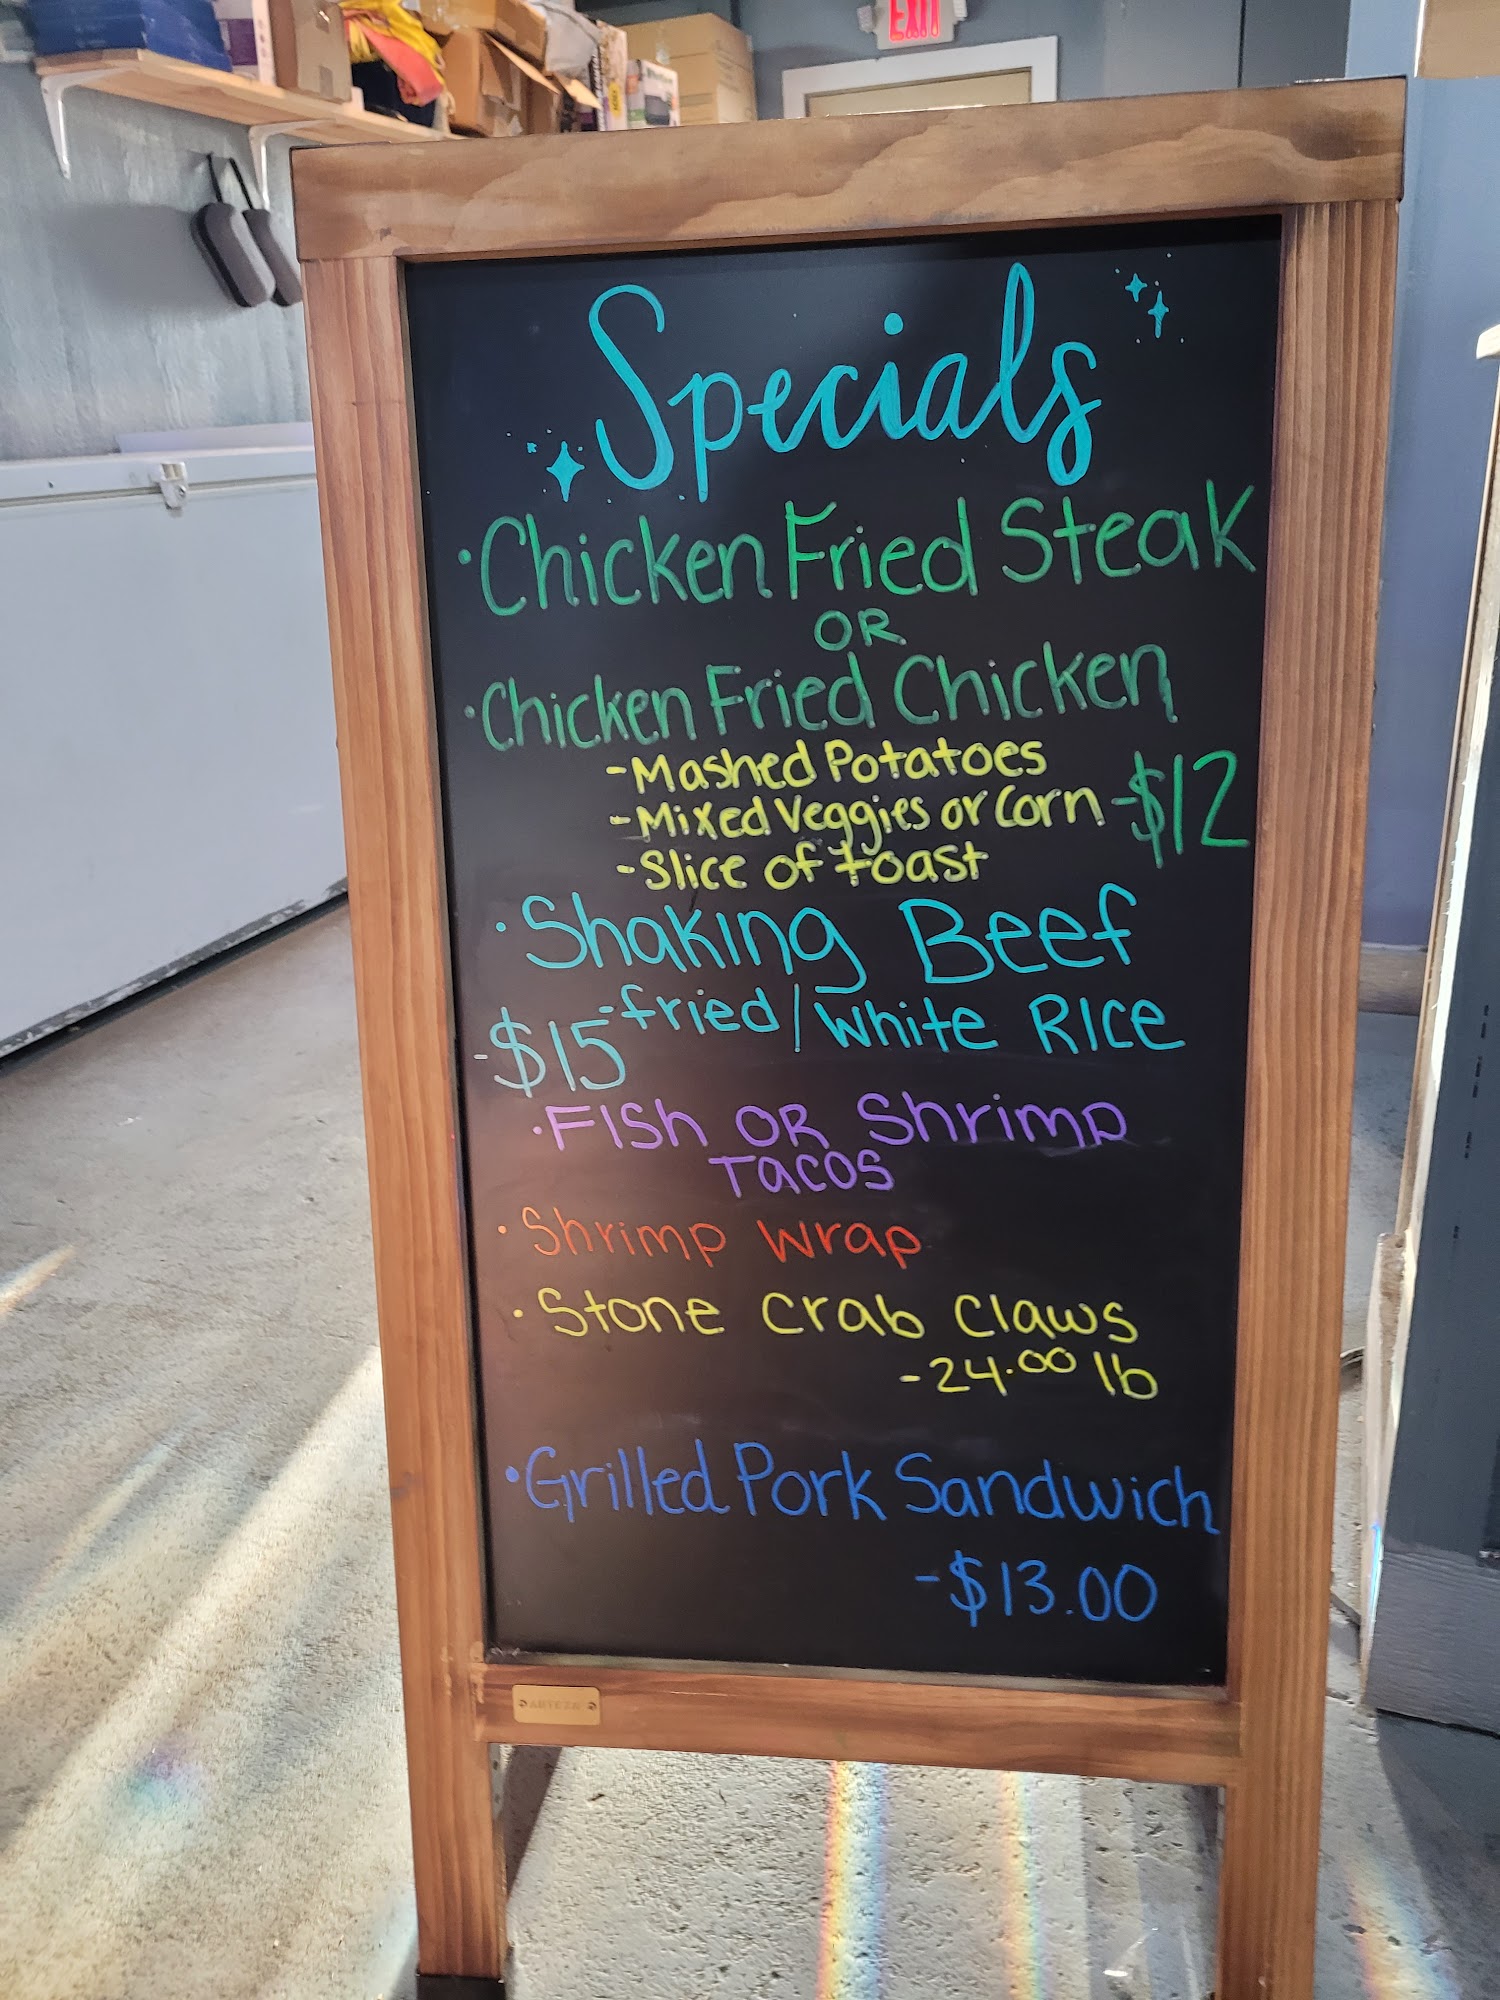 EXIT
Specials
·Chicken Fried Steak
OR
·Chicken Fried Chicken
-Mashed Potatoes
-Mixed Veggies or Corn -$12
-Slice of toast
·Shaking Beef
-fried/White Rice
-$15
·Fish OR Shrimp
Tacos
·Shrimp Wrap
·Stone Crab Claws
-24.00 lb
·Grilled Pork Sandwich
-$13.00
ARTEZA